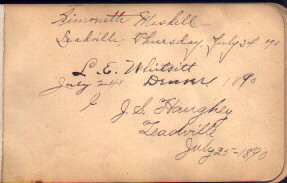 Simonette Maskell
Leadville, Thursday, July 24 '90
L. E. Whitsitt
July 24th Denver 1890
J. S. Haughey
Leadville
July 25-1890